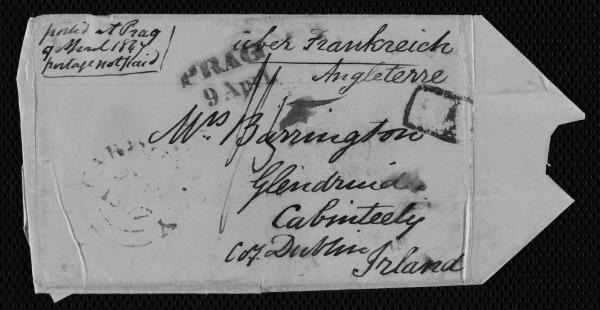 posted at Prag
9 April 1847
postage not paid
über Frankreich
Angleterre
PRAG
9 Apr
Mrs. Barrington
Glendruid
Cabinteely
Coy. Dublin
Irland